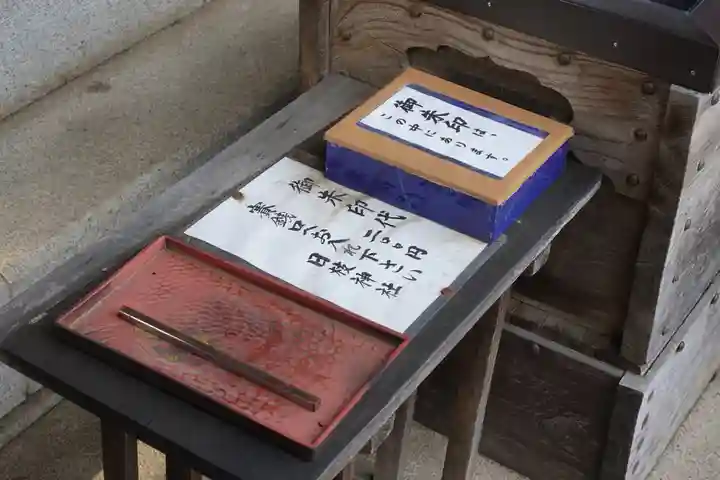 御朱印は、
この中にあります。
御朱印代 二〇〇円
賽銭口へお入れ下さい
日枝神社